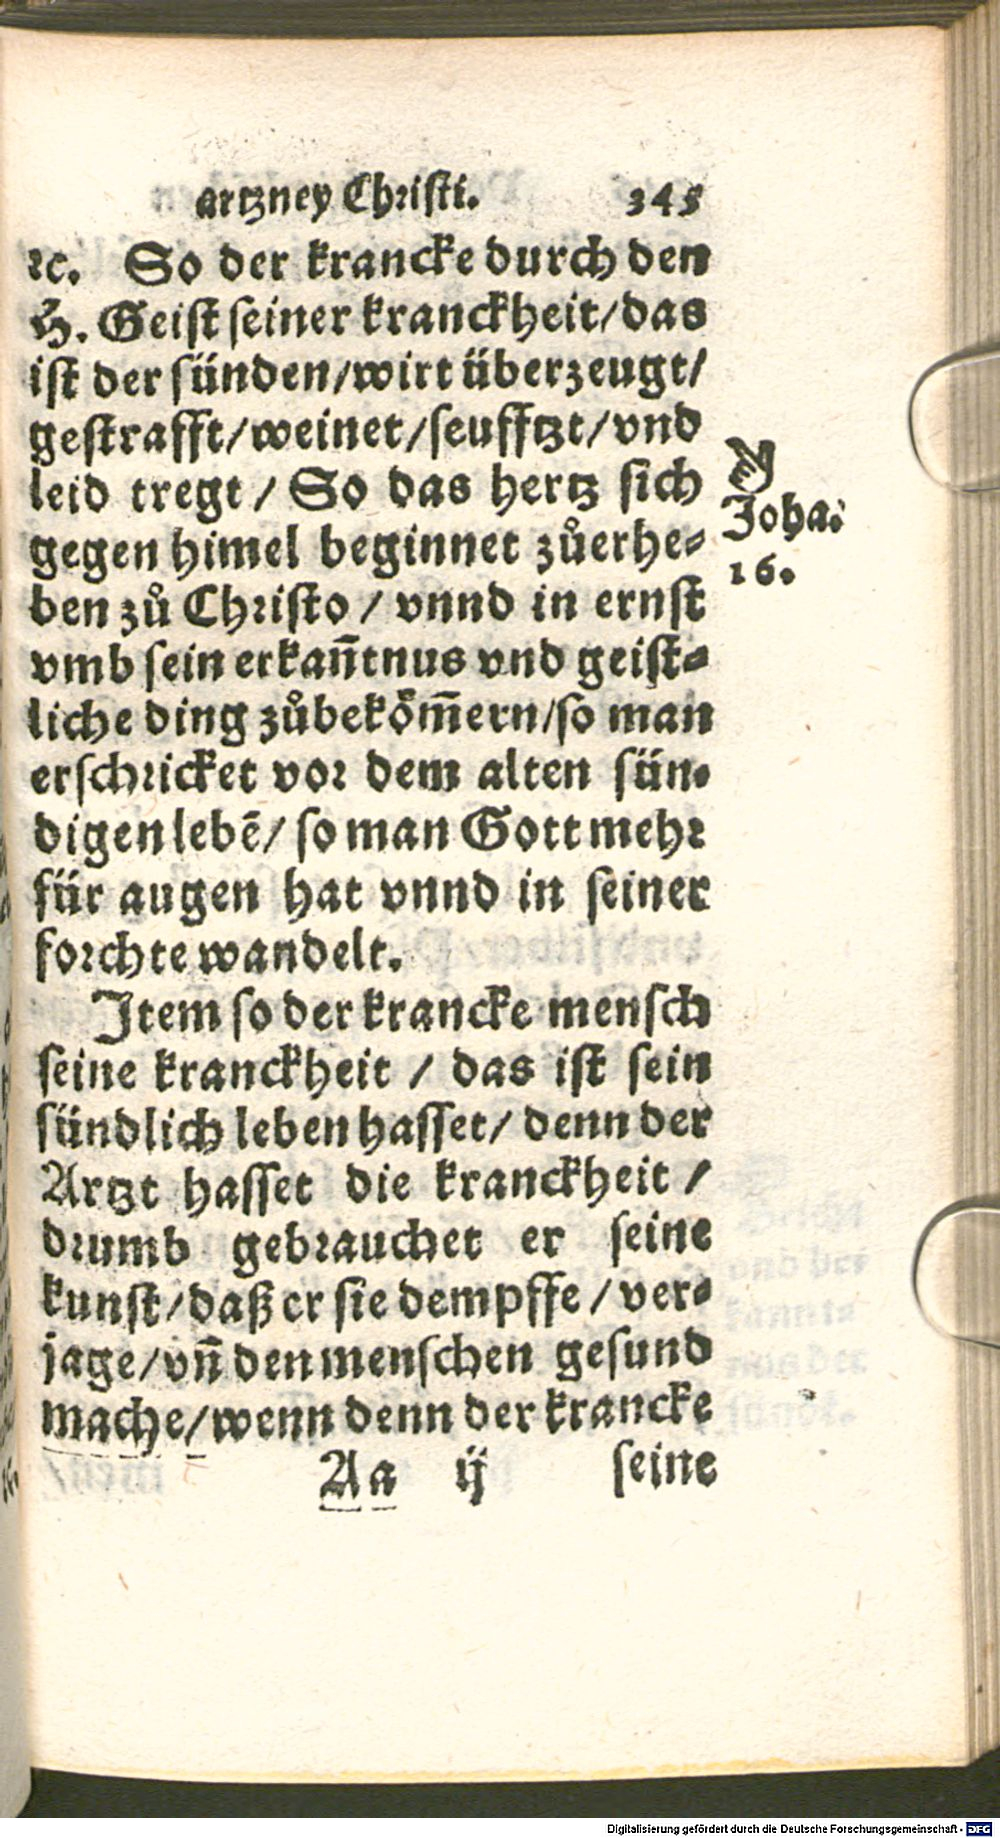 artzney Christi. 345
ꝛc. So der krancke durch den
H. Geist seiner kranckheit/das
ist der sünden/wirt überzeugt/
gestrafft/weinet/seufftzt/vnd
leid tregt / So das hertz sich
gegen himel beginnet zůerhe-
ben zů Christo / vnnd in ernst
vmb sein erkañtnus vnd geist-
liche ding zůbeköm̃ern/so man
erschricket vor dem alten sün-
digen lebẽ/ so man Gott mehr
für augen hat vnnd in seiner
forchte wandelt.
Item so der krancke mensch
seine kranckheit / das ist sein
sündlich leben hasset/ denn der
Artzt hasset die kranckheit /
drumb gebrauchet er seine
kunst/daß er sie dempffe / ver-
jage/vñ den menschen gesund
mache/wenn denn der krancke
Aa ij seine
☞
Joha.
16.
Digitalisierung gefördert durch die Deutsche Forschungsgemeinschaft - DFG